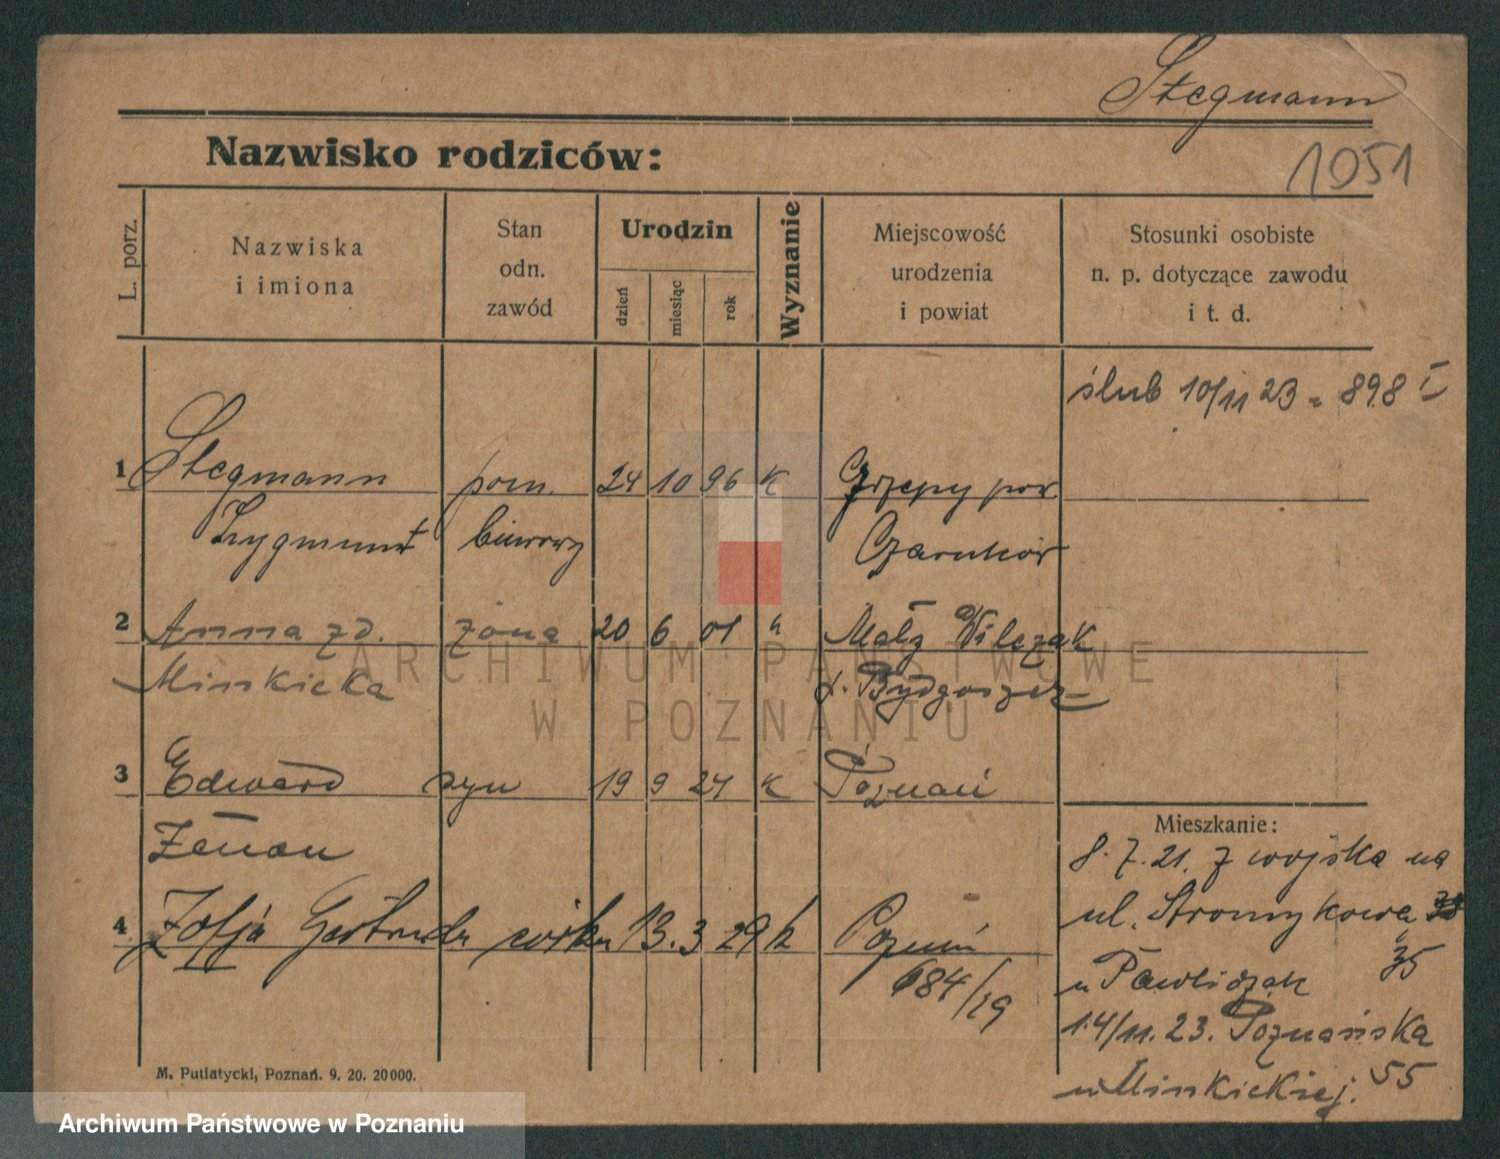 Stegmann
Nazwisko rodziców:
1051
L. porz.
Nazwiska
i imiona
Stan
odn.
zawód
Urodzin
dzień
miesiąc
rok
Wyznanie
Miejscowość
urodzenia
i powiat
Stosunki osobiste
n. p. dotyczące zawodu
i t. d.
ślub 10/11 23 = 898 I
1 Stegmann pom. 24 10 96 K pow
Zygmunt biurowy Czarnków
2 Anna zd. żona 20 6 01 " Mały Wilczak
Minkicka p. Bydgoszcz
3 Edward syn 19 9 24 K Poznań
Zenon
4 Zofja Gertruda córka 13. 3 29 k Poznań
684/29
Mieszkanie:
8. 7. 21. z wojska na
ul. Stromy
35
u Pawlidzak
14/11. 23. Poznańska
55
u Minkickiej.
M. Putiatycki, Poznań. 9. 20. 20000.
ARCHIWUM PAŃSTWOWE
W POZNANIU
Archiwum Państwowe w Poznaniu